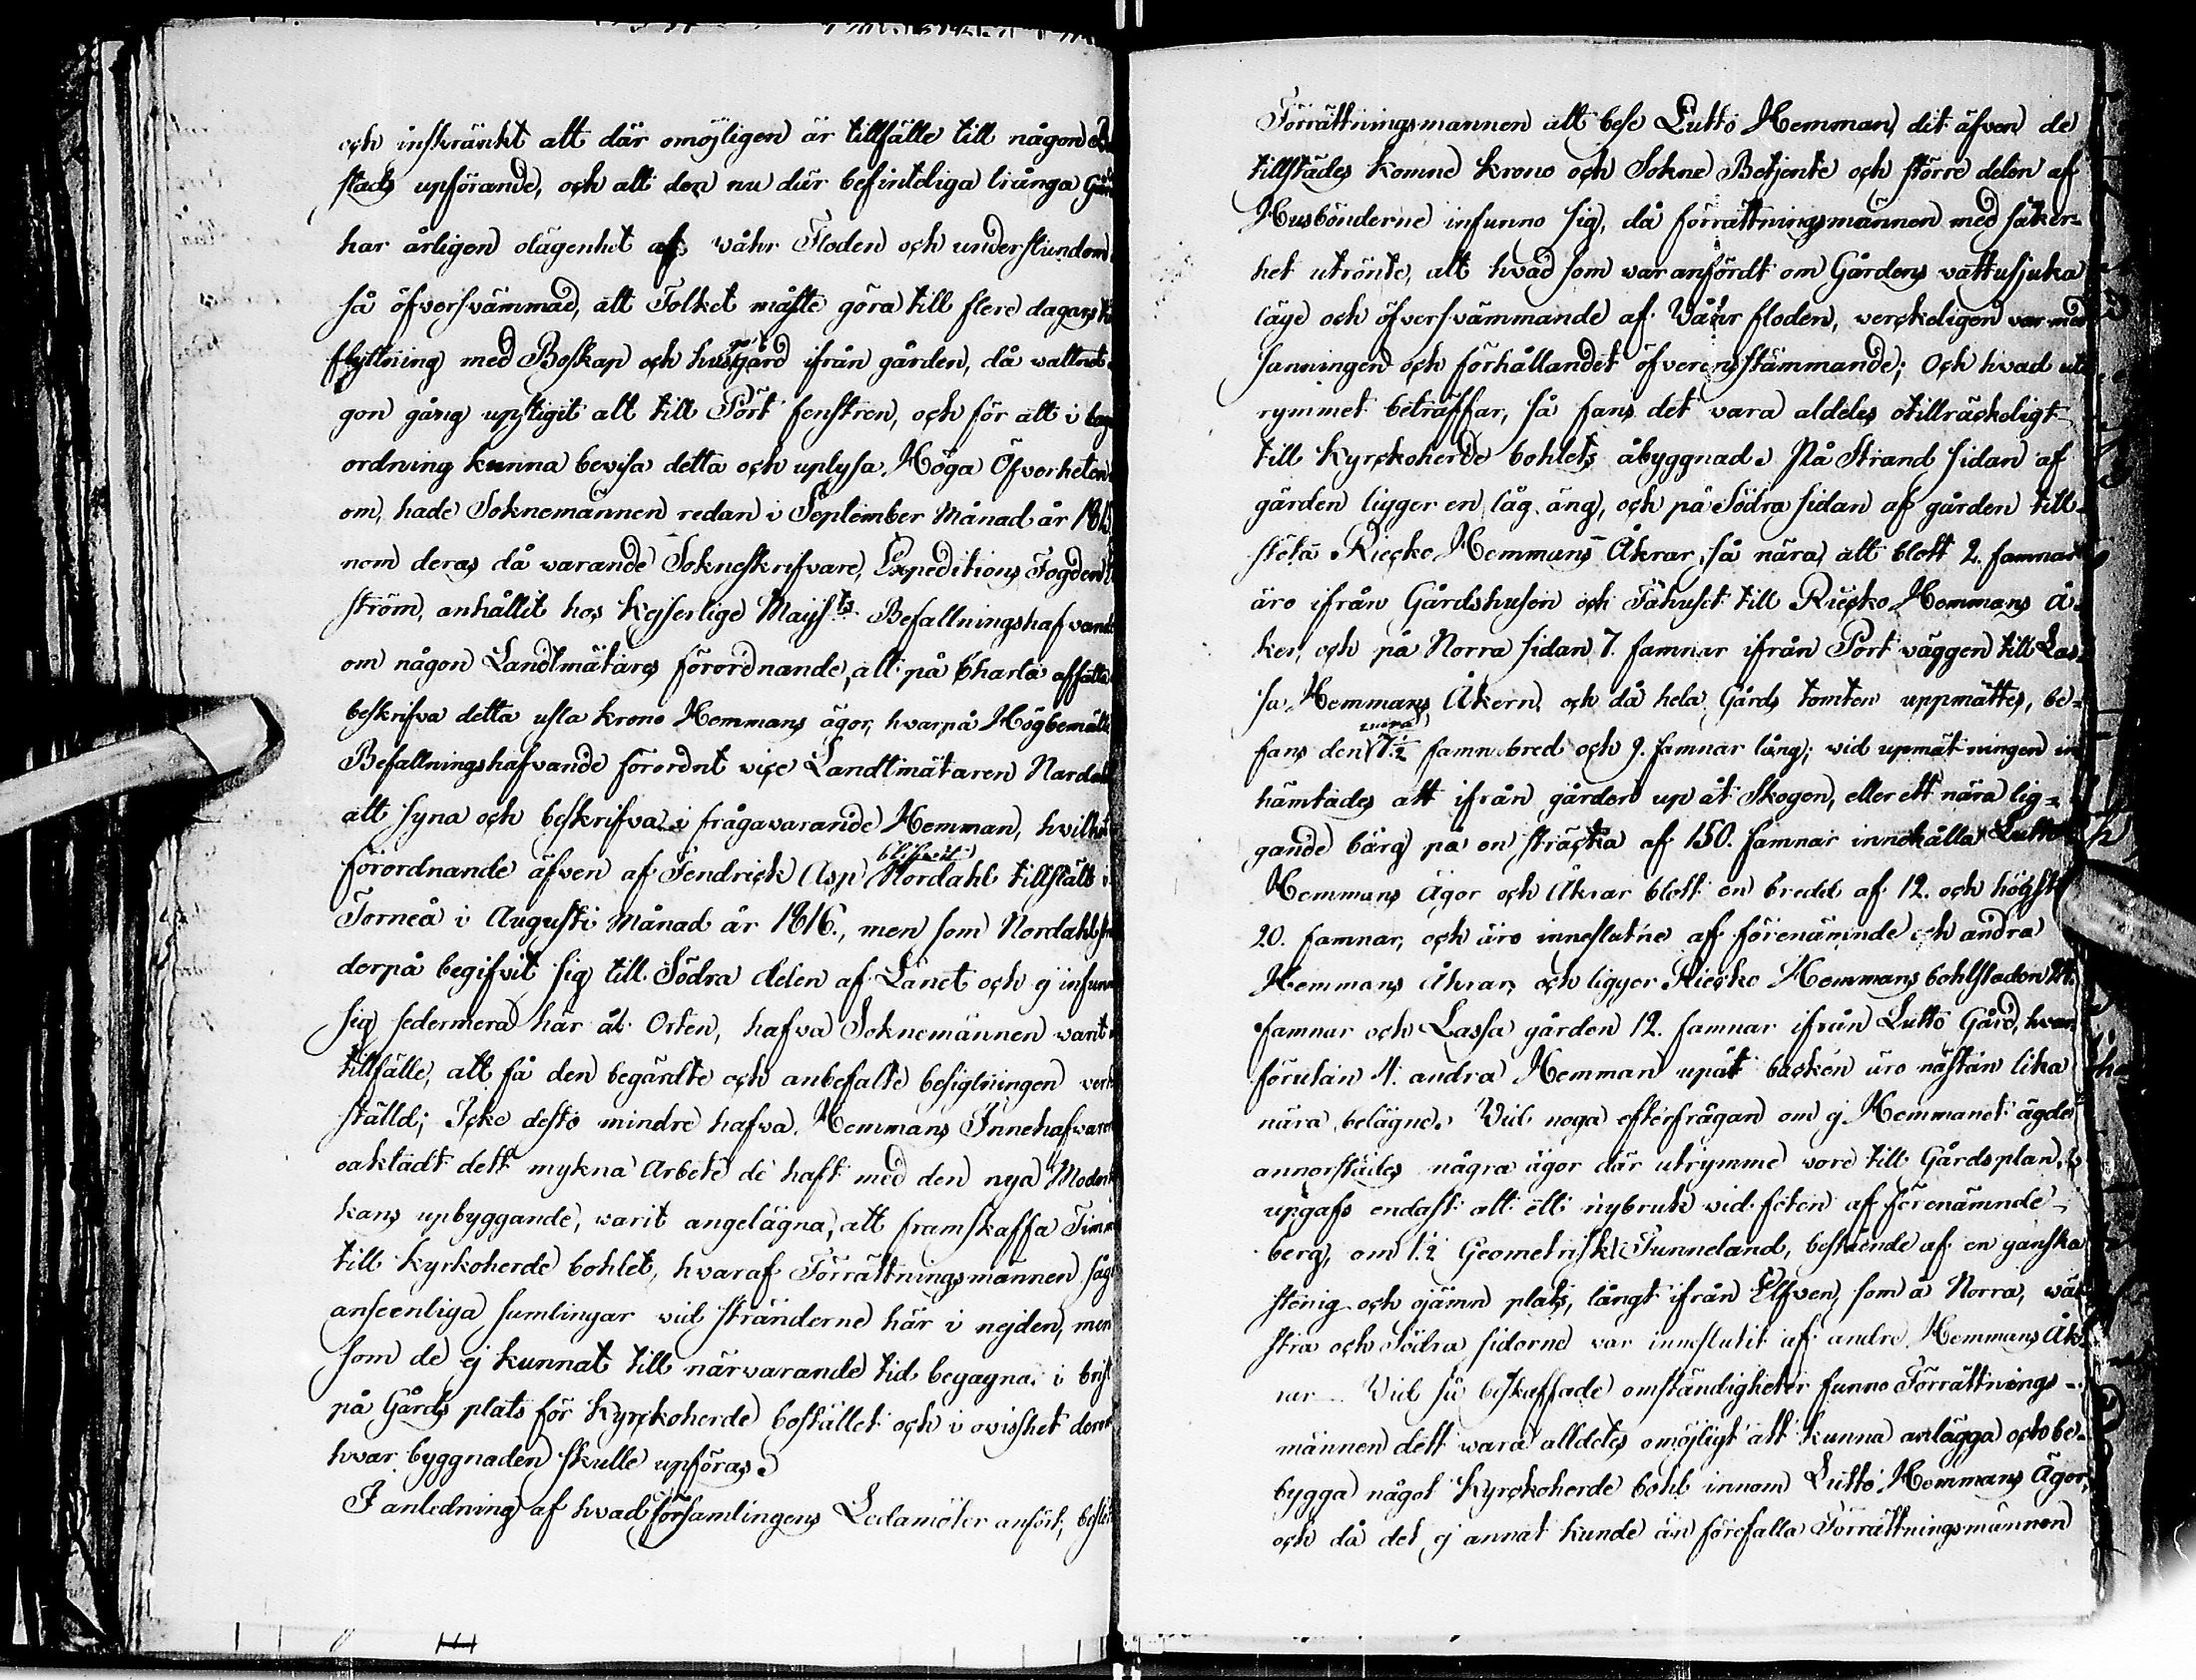 och inskränkt att där omöjligen är tillfälle till någon
stads upförande, och att den nu där befinteliga trånga
har årligen olägenhet af wåhr Floden och understundom
så öfversvämmad, att Folket måste göra till flere dagars
flyttning med Boskap och husgård ifrån gården, då wattnet
gon gång upstigit alt till Pört fenstren, och för att i
ordning kunna bevisa detta och uplysa Höga Öfverheten
om, hade Soknemännen redan i September Månad år 1815
nom deras då warande Sokneskrifvare, Expeditions Fogden
ström, anhållit hos Kejserlige Maijsts Befallningshafvande
om någon Landtmätares förordnande, att på Charta affatta
beskrifva detta usla krono Hemmans ägor, hvarpå Högbemälte
Befallningshafvande förordnt viçe Landtmätaren Nordahl
att syna och beskrifva i frågavarande Hemman, hvilket
förordnande äfven af Fendrich Asp Nordahl blifwit tillstält i
Torneå i Augusti Månad år 1816., men som Nordahl
derpå begifvit sig till Södra delen af Länet och ej infunnit
sig sedermera här åt Orten, hafva Soknemännen warit
tillfälle, att få den begärdte och anbefalte besigtningen verk
ställd; Icke desto mindre hafva Hemmans Innehafvare
oaktadt dett mykna Arbete de haft med den nya Moder
kans upbyggande, warit angelägna, att framskaffa Timmer
till Kyrkoherde bohlet, hvaraf Förrättningsmännen såg
anseenliga samlingar vid stränderne här i nejden, men
som de ej kunnat till närvarande tid begagna i brist
på Gårds plats för Kyrckoherde bostället och i ovisshet
hvar byggnaden skulle upföras.
I anledning af hvad församlingens Ledamöter anfört,
Förrättningsmannen att bese Lutto Hemman, dit äfven de
tillstädes komne krono och Sokne Betjente och större delen af
Husbönderne infunno sig, då förrättningsmännen med säker-
het utrönte, att hvad som war anfördt om Gårdens vattusjuka
läge och öfversvämmande af Våhr floden, verckeligen var med
sanningen och förhållandet öfverensstämmande; Och hvad ut-
rymmet beträffar, så fans det vara aldeles otillräckeligt
till Kyrckoherde bohlets åbyggnad. På Strand sidan af
gården ligger en låg äng, och på Södra sidan af gården till-
stöta Riecko Hemmans Åkrar så nära, att blott 2. famnar
äro ifrån Gårdshusen och Fähuset till Riecko Hemmans å-
ker, och på Norra sidan 7. famnar ifrån Pört väggen till Las-
sa Hemmans Åkern, och då hela Gårds tomten uppmättes, be-
fans den 7½ famn bred och 9. famnar lång; vid upmätningen in
hämtades att ifrån gården up åt Skogen, eller ett nära lig-
gande bärg på en sträcka af 150. famnar innehålla Lutto
Hemmans Ägor och Åkrar blott en bredd af 12. och högst
20. famnar, och äro inneslutne af förenämnde och andra
Hemmans Åkrar, och ligger Riecko Hemmans bohlstaden
famnar och Lassa gården 12. famnar ifrån Lutto Gård, hvar
förutan 4. andra Hemman upåt backen äro nästan lika
nära belägne. Vid noga efterfrågan om ej Hemmanet ägde
annorstädes några ägor där utrymme vore till Gårdsplan,
upgafs endast att ett nybruk vid foten af förenämnde
berg, om 1½ Geometriskt Tunneland, bestående af en ganska
stenig och ojämn plats, långt ifrån Elfven, som å Norra, vä-
stra och Södra sidorne var inneslutit af andre Hemmans Åk-
rar. Vid så beskaffade omständigheter funno Förrättnings-
männen dett wara alldeles omöjligt att kunna anlägga och be-
bygga något Kyrckoherde bohl innom Lutto Hemmans Ägor,
och då det ej annat kunde än förefalla Förrättningsmännen